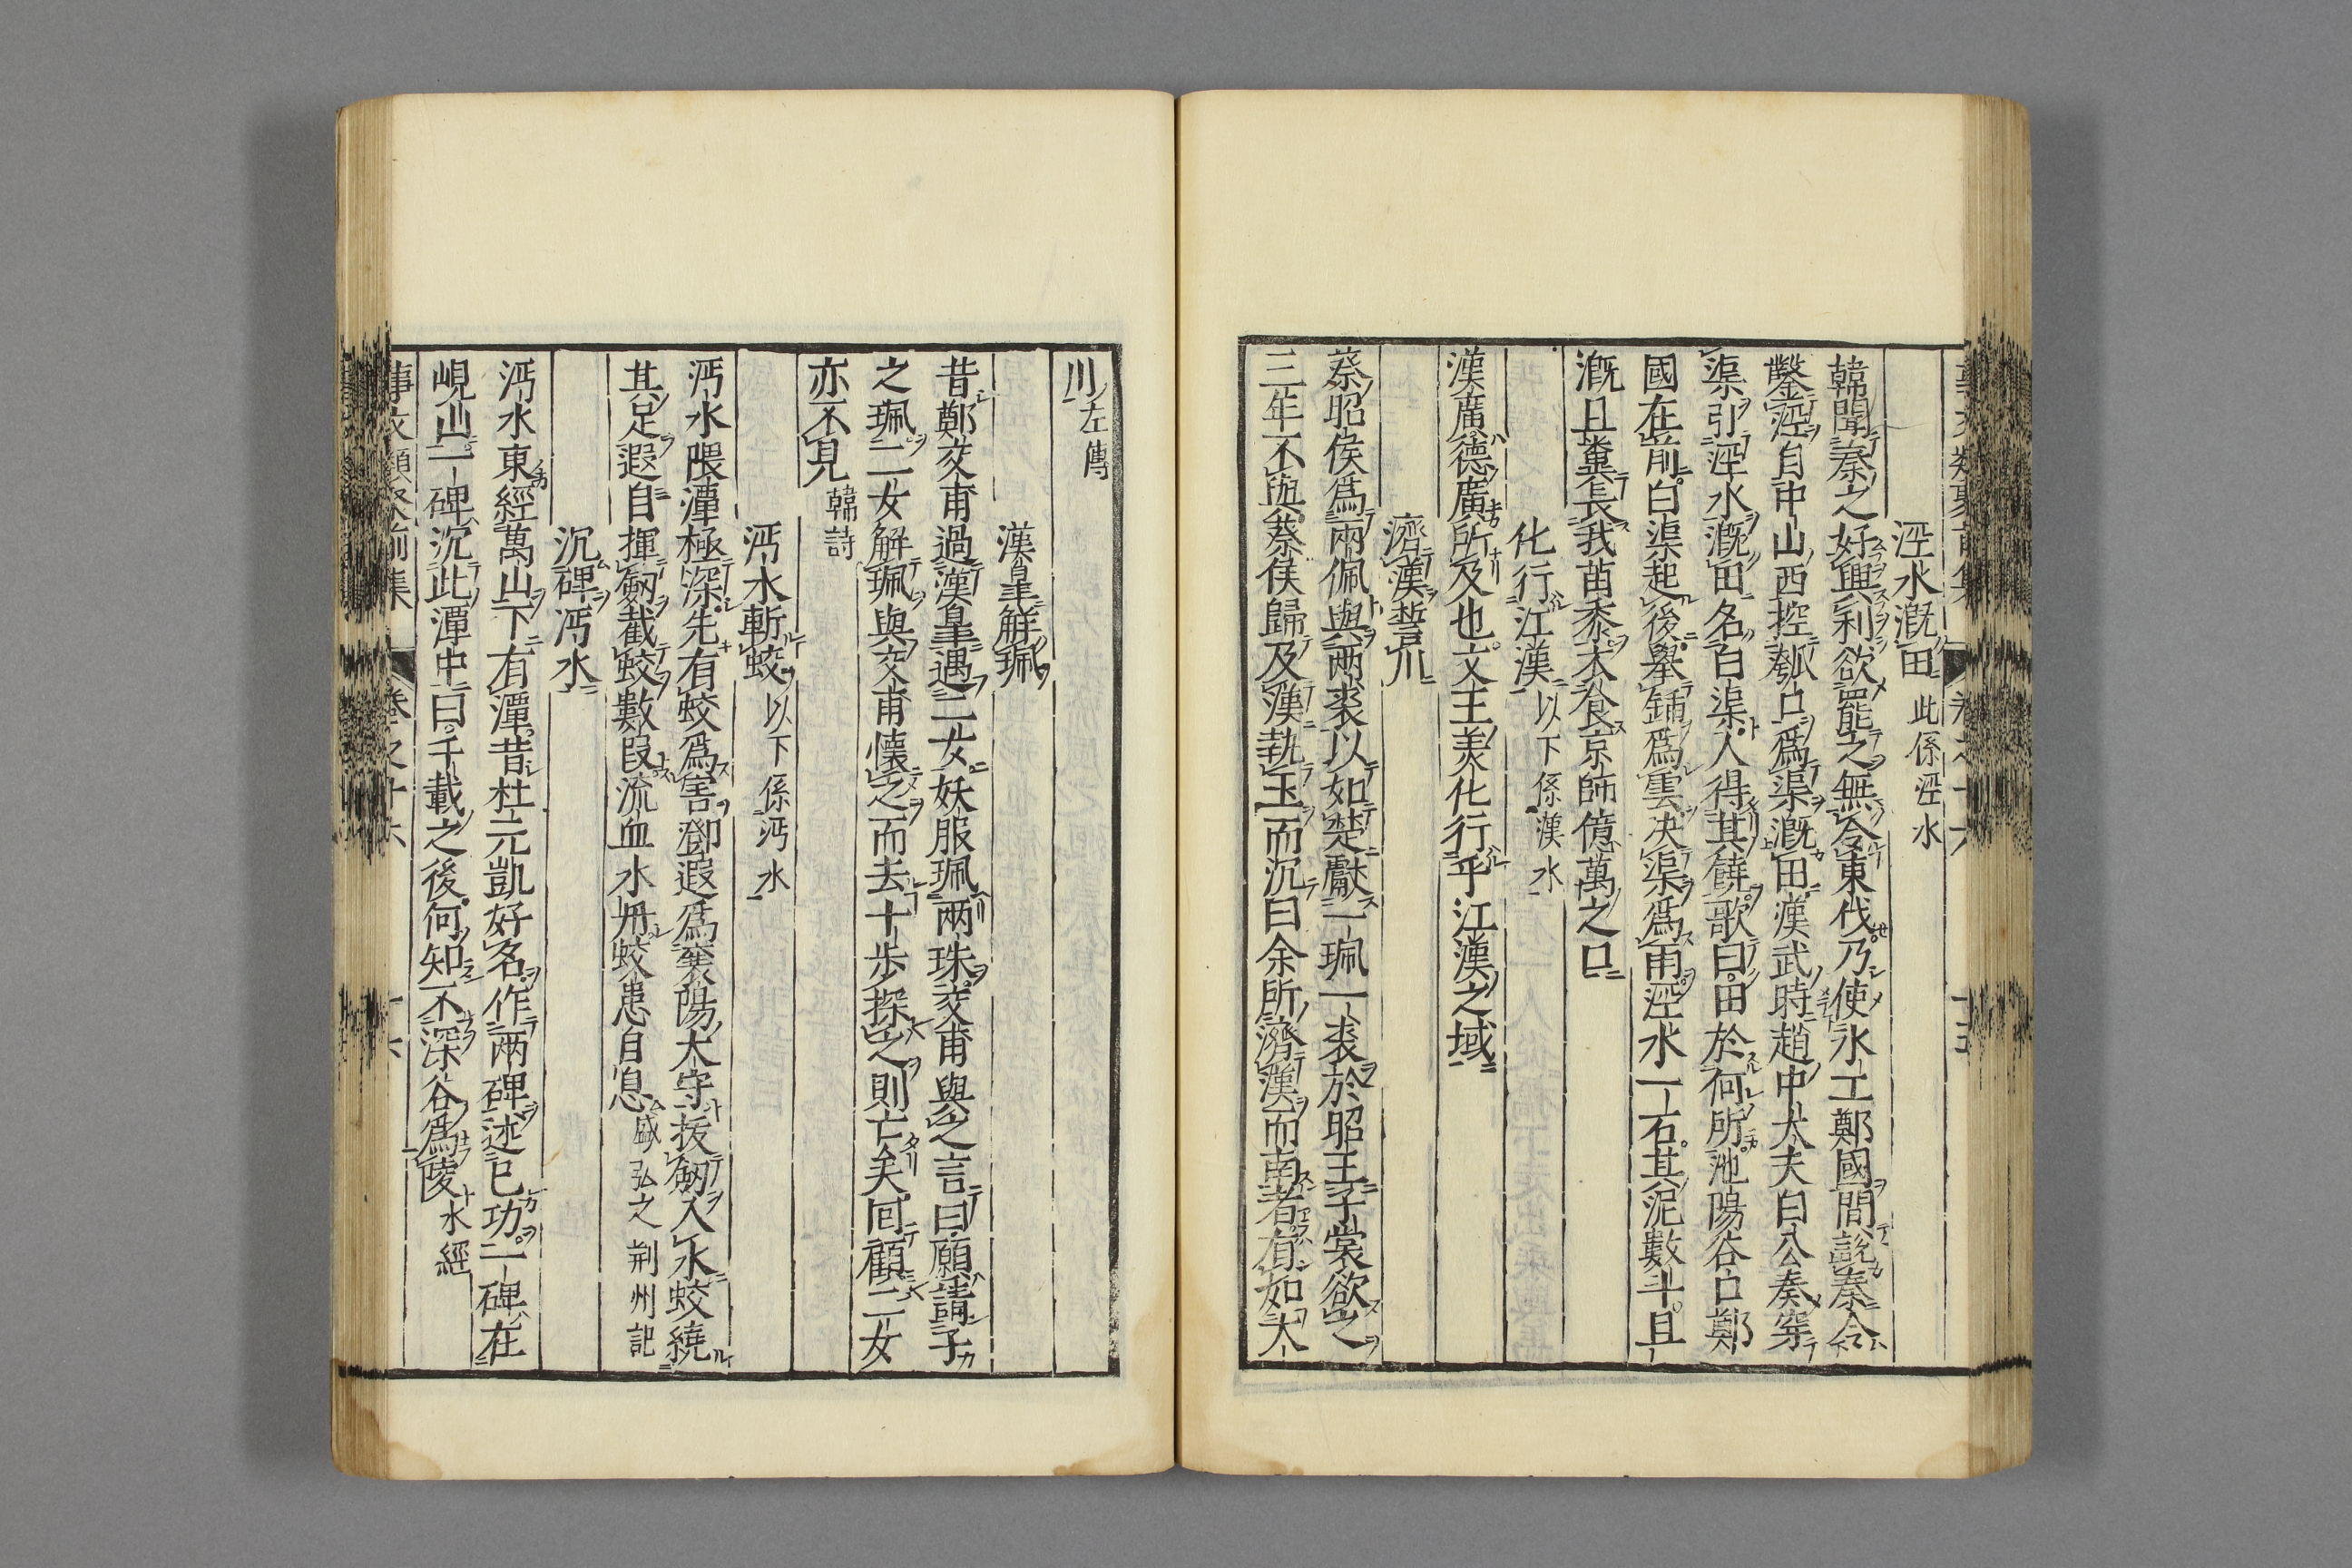 涇水漑田 此係涇水
韓聞秦之好興利欲罷之無令東伐乃使水工鄭國間說秦令
鑿涇自中山西控瓠口爲渠漑田漢武時趙中大夫白公奏穿
渠引涇水漑田名白渠人得其饒歌曰田於何所池陽谷口鄭
國在前白渠起後舉鍤爲雲决渠爲雨涇水一石其泥數斗且
漑且糞長我苗黍衣食京師億萬之口
化行江漢 以下係漢水
漢廣德廣所及也文王美化行乎江漢之域
濟漢誓川
蔡昭侯爲兩佩與兩裘以如楚獻一珮一裘於昭王子裳欲之
三年不與蔡侯歸及漢執玉而沉曰余所濟漢而南者有如大
川 左傳
漢皐解珮
昔鄭交甫過漢皐遇二女妖服珮兩珠交甫與之言曰願請子
之珮二女解珮與交甫懷之而去十步探之則亡矣囘顧二女
亦不見 韓詩
沔水斬蛟 以下係沔水
沔水隈潭極深先有蛟爲害鄧遐爲襄陽太守拔劒入水蛟繞
其足遐自揮劒截蛟數段流血水丹蛟患自息 盛弘之荆州記
沉碑沔水
沔水東經萬山下有潭昔杜元凱好名作兩碑述已功一碑在
峴山一碑沉此潭中曰千載之後何知不深谷爲陵 水經
事文類聚前集 卷之十六 十六